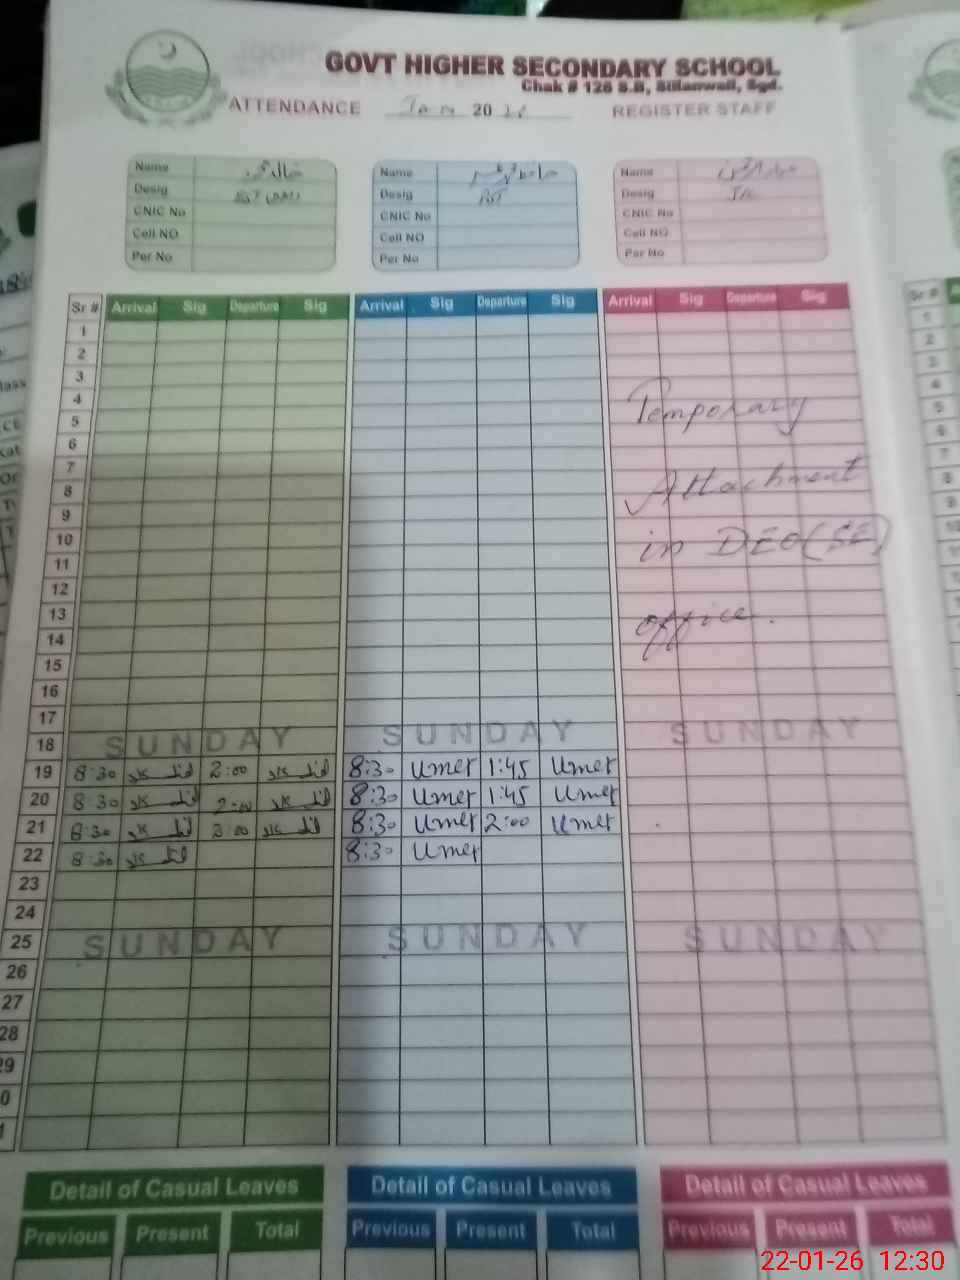 GOVT HIGHER SECONDARY SCHOOL
Chak # 126 S.B, Sillanwali, Sgd.
ATTENDANCE Jan 20 REGISTER STAFF
Name خالد Name حافظ Name
Desig Desig PST Desig
CNIC No CNIC No CNIC No
Cell NO Cell NO Cell NO
Per No Per No Per No
Sr # Arrival Sig Departure Sig Arrival Sig Departure Sig Arrival Sig Departure Sig
1
2
3
4 Temporary
5
6
7
8 Attachment
9
10 in DEO(SE)
11
12
13 office.
14
15
16
17
18 SUNDAY SUNDAY SUNDAY
19 8:30 2:00 8:30 Umer 1:45 Umer
20 8:30 2:00 8:30 Umer 1:45 Umer
21 8:30 3:00 8:30 Umer 2:00 Umer
22 8:30 8:30 Umer
23
24
25 SUNDAY SUNDAY SUNDAY
26
27
28
29
0
1
Detail of Casual Leaves Detail of Casual Leaves Detail of Casual Leaves
Previous Present Total Previous Present Total Previous Present Total
22-01-26 12:30